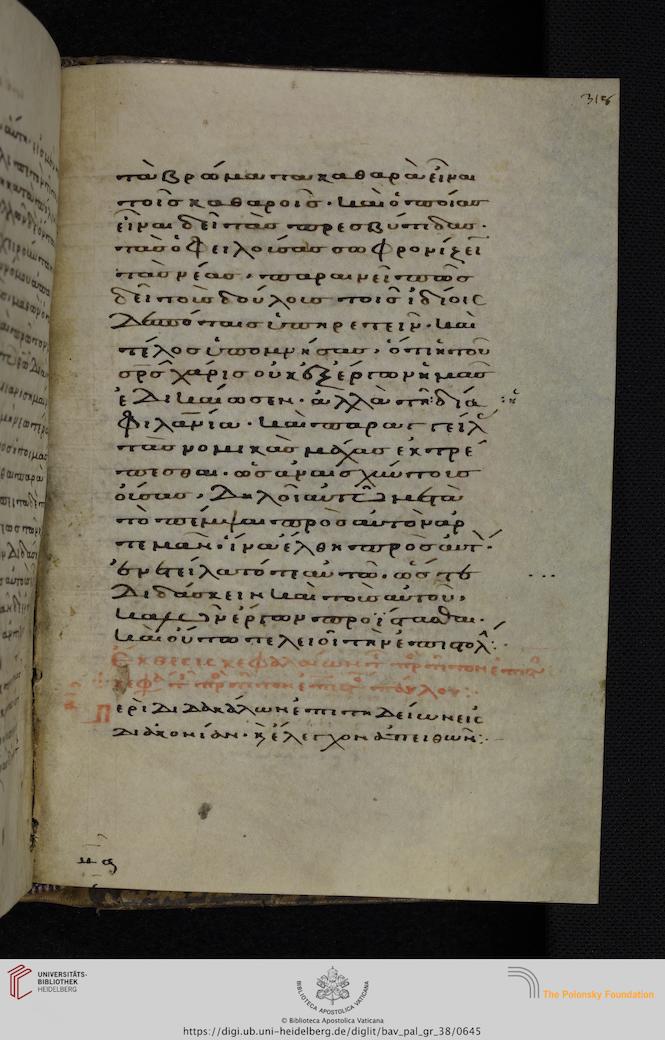 318
τὰ βρώματα καθαρὰ εἶναι
τοῖς καθαροῖς· καὶ ὁποίας
εἶναι δεῖ τὰς πρεσβύτιδας·
τὰς ὀφειλούσας σωφρονίζειν
τὰς νέας, παραινεῖ πῶς
δεῖ τοὺς δούλους τοῖς ἰδίοις
δεσπόταις ὑπηρετεῖν· καὶ
τέλος ὑπομνήσας, ὅτι ἡ τοῦ
σρς χάρις οὐκ ἐξ ἔργων ἡμᾶς
ἐδικαίωσεν· ἀλλὰ τῇ διὰ
φιλανίαν· καὶ παραγγείλ
τὰς νομικὰς μάχας ἐκτρέ
πεσθαι· ὡς ἀναισχύντους
οὔσας, δηλοῖ αὐτῷ μετὰ
τὸ πέμψαι πρὸς αὐτὸν ἀρ
τεμᾶν· ἵνα ἔλθῃ πρὸς αὐτ·
ἐνετείλατό τε αὐτῷ, ὥστε
διδάσκειν καὶ τοὺς αὐτοῦ,
καλῶν ἔργων προΐστασθαι·
καὶ οὕτω τελειοῖ τὴν ἐπιστολ
Ἔκθεσις κεφαλαίων τ πρ τίτον ἐπι
κεφ τ πρ τίτον ἐπι παύλου
α Περὶ διδασκάλων ἐπιτηδείων εἰς
διακονίαν· κ ἔλεγχον ἀπειθῶν
UNIVERSITÄTS-
BIBLIOTHEK
HEIDELBERG
BIBLIOTECA APOSTOLICA VATICANA
The Polonsky Foundation
© Biblioteca Apostolica Vaticana
https://digi.ub.uni-heidelberg.de/diglit/bav_pal_gr_38/0645